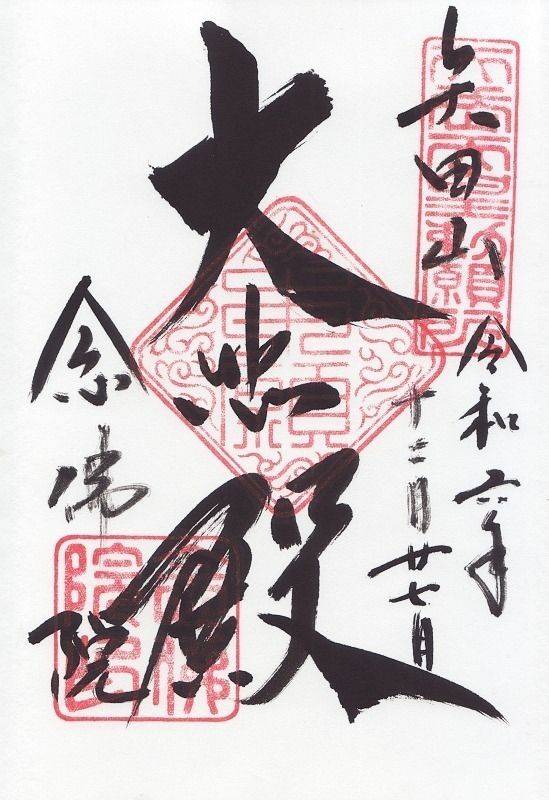 矢田山
令和六年
十二月廿七日
大悲殿
念佛院